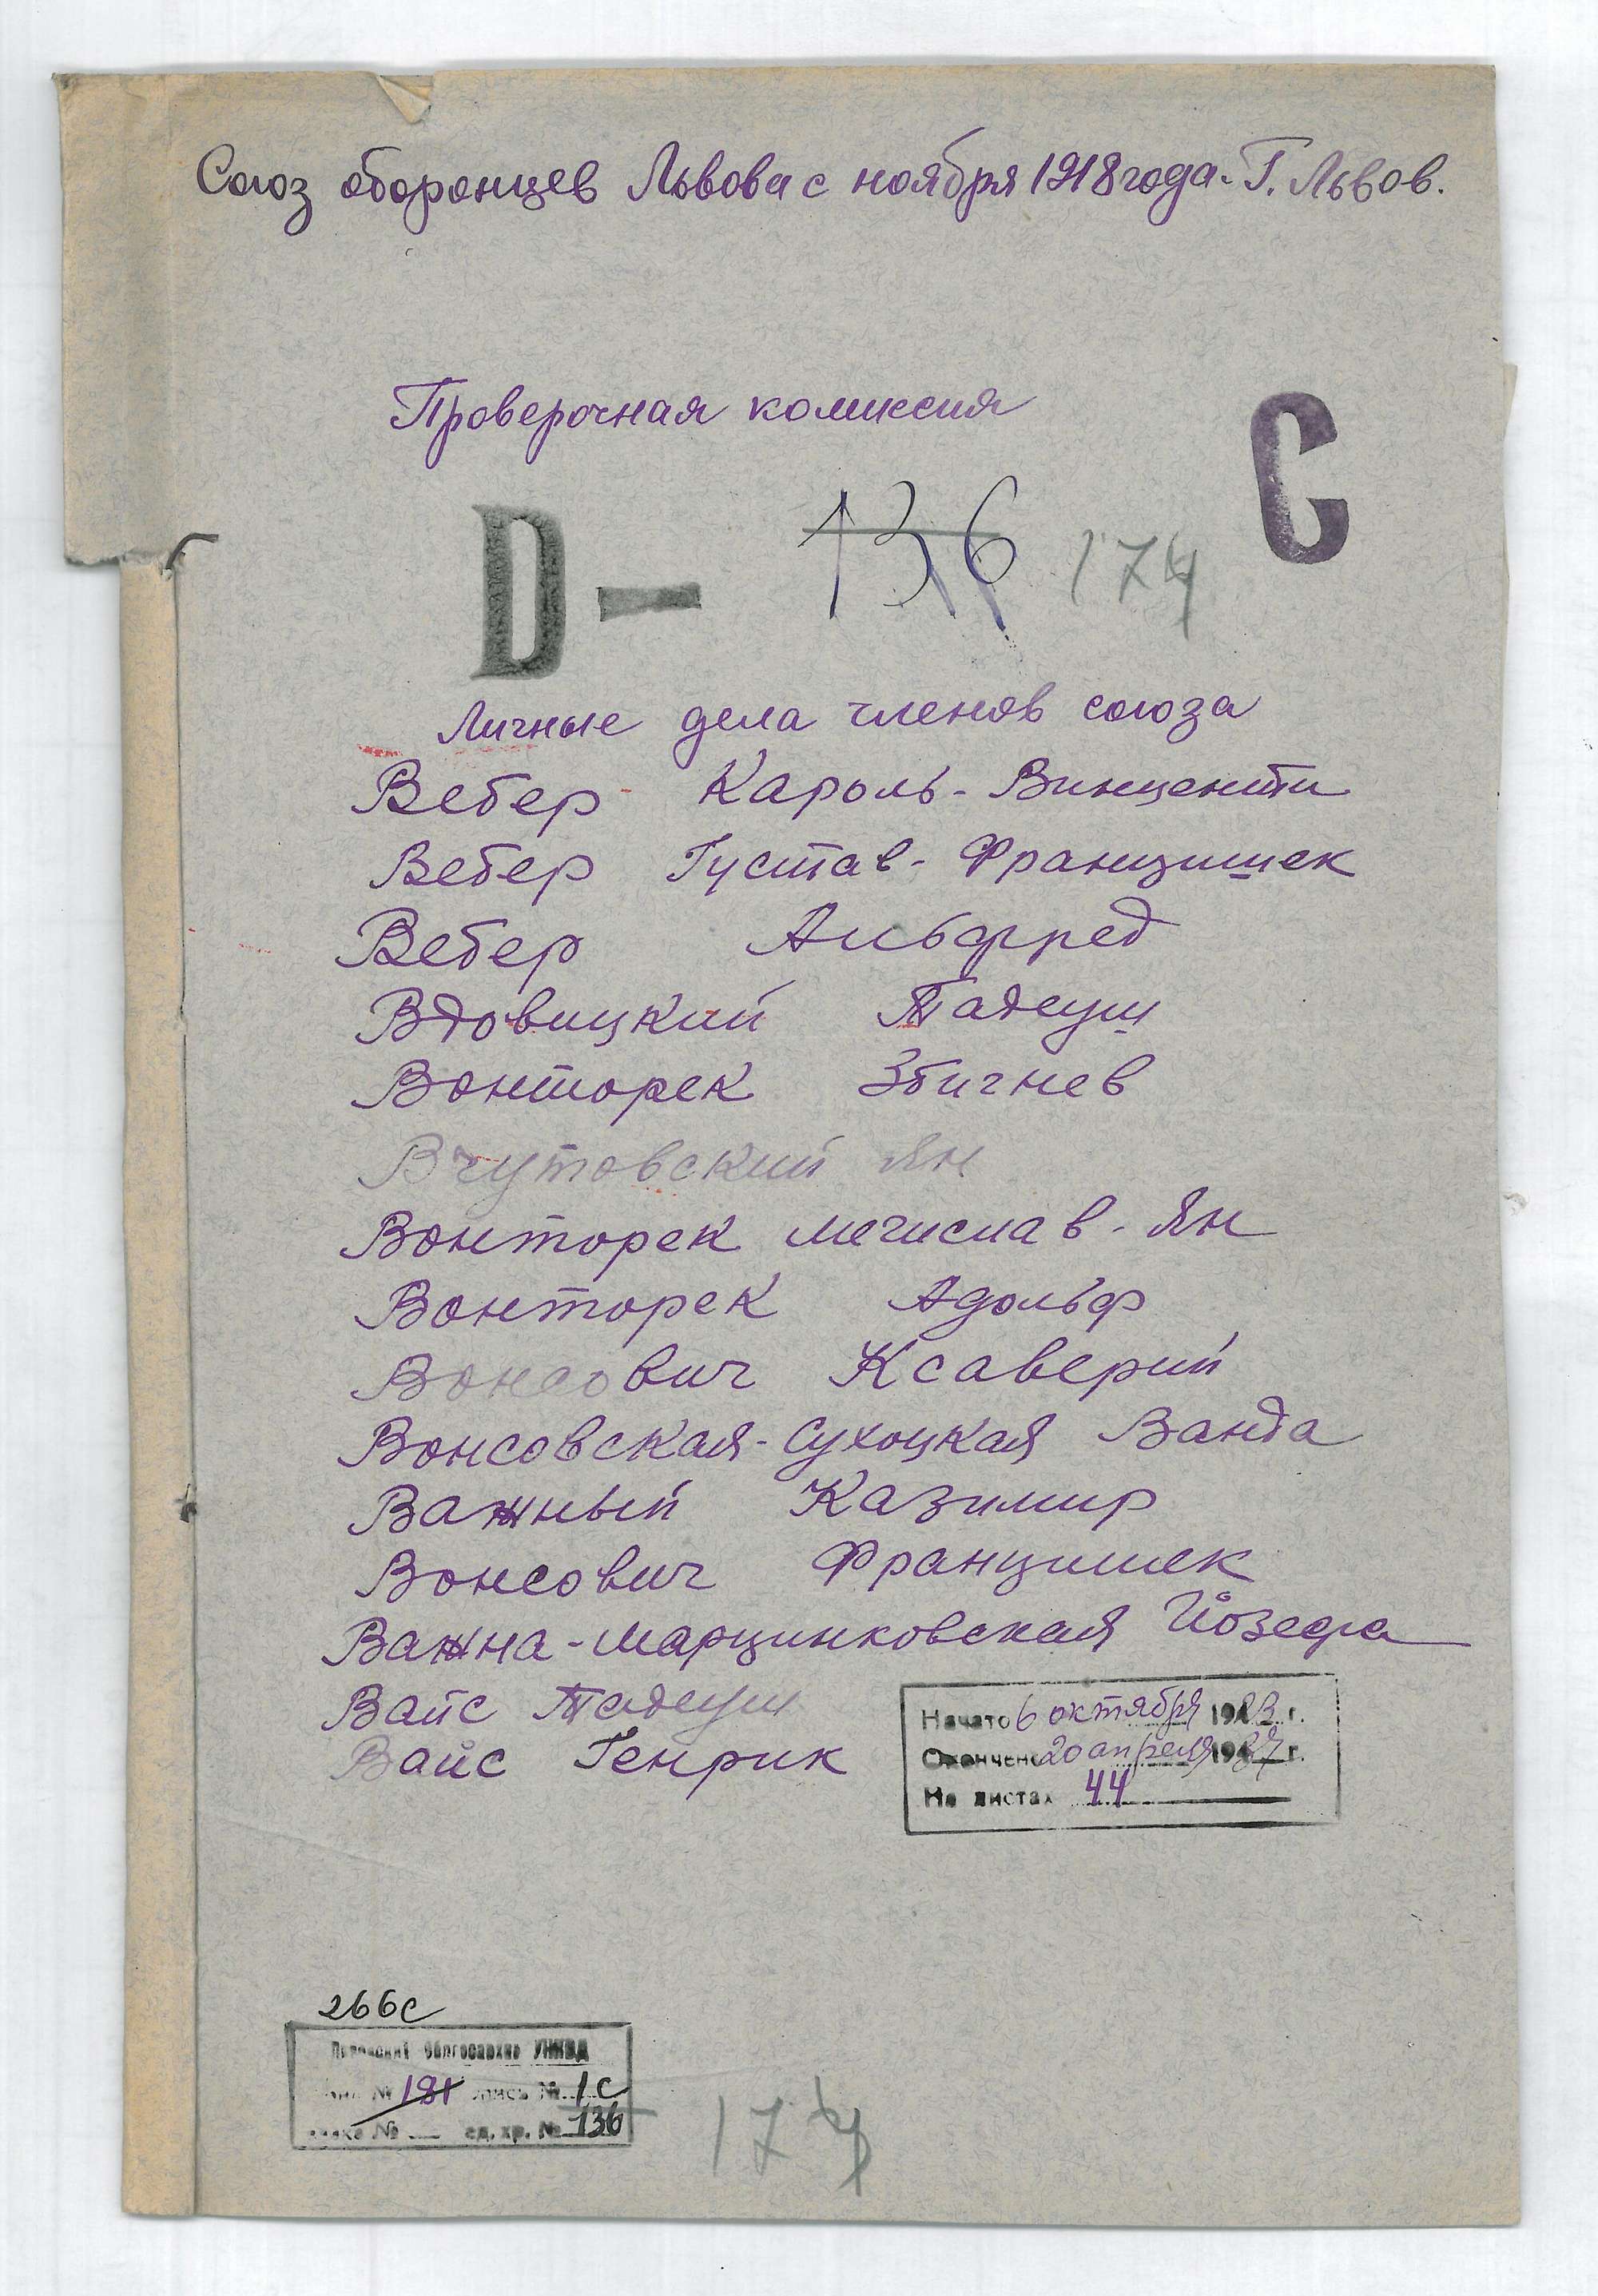 Союз оборонцев Львова с ноября 1918 года. Г. Львов.
Проверочная комиссия
C
D — 136 174
Личные дела членов союза
Вебер Кароль-Винценти
Вебер Густав-Францишек
Вебер Альфред
Вдовицкий Тадеуш
Вонторек Збигнев
Вчутовский Ян
Вонторек Мечислав-Ян
Вонторек Адольф
Вонсович Ксаверий
Вонсовская-Сухоцкая Ванда
Важный Казимир
Вонсович Францишек
Важна-Марцинковская Йозефа
Вайс Тадеуш
Вайс Генрик
Начато 6 октября 19 г.
Окончено 20 апреля 19 г.
На листах 44
266с
Львовский Облгосархив УНКВД
№ 181 опись № 1с
№ — ед. хр. № 136
174